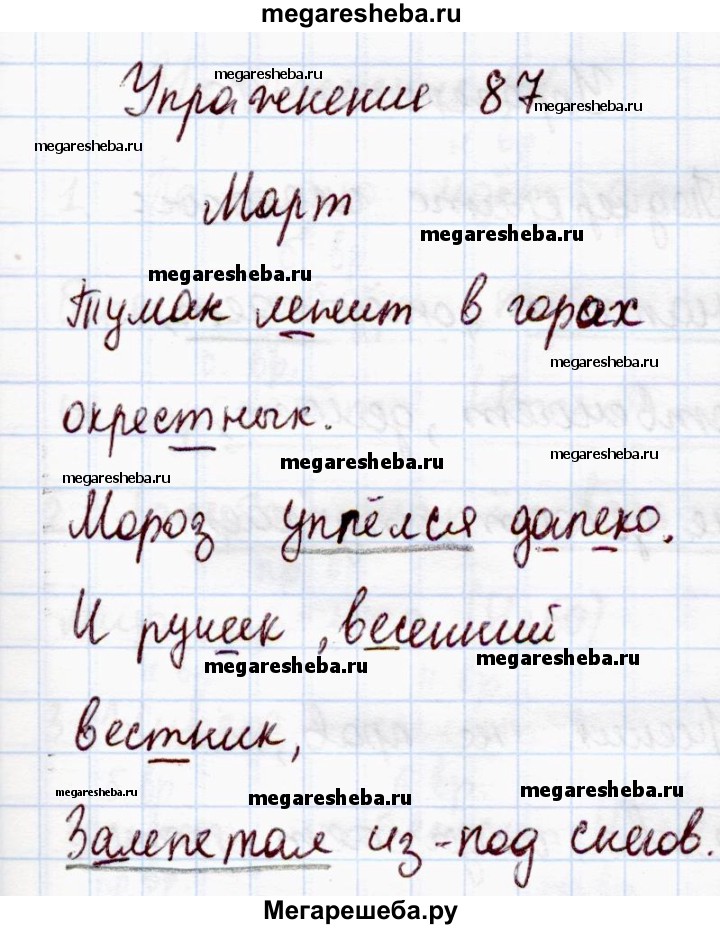 megaresheba.ru
megaresheba.ru
Упражнение 87
megaresheba.ru
megaresheba.ru
Март
megaresheba.ru
megaresheba.ru
Туман лежит в горах
megaresheba.ru
окрестных.
megaresheba.ru
megaresheba.ru
megaresheba.ru
Мороз уплёлся далеко.
И ручеек, весенний
megaresheba.ru
megaresheba.ru
вестник,
megaresheba.ru
megaresheba.ru
megaresheba.ru
Залепетал из-под снегов.
Мегарешеба.ру